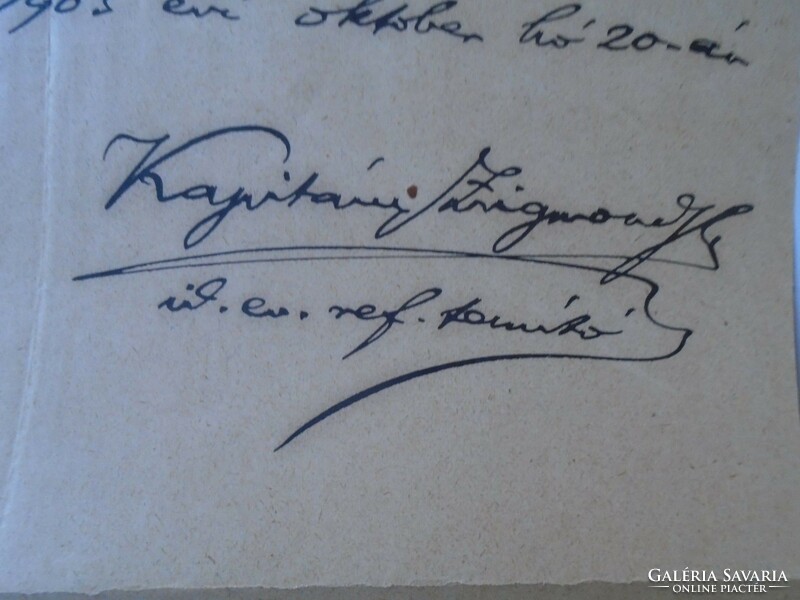 1903 évi október hó 20-án
Kapitány Zsigmond
id. ev. ref. tanító
GALÉRIA SAVARIA
ONLINE PIACTÉR